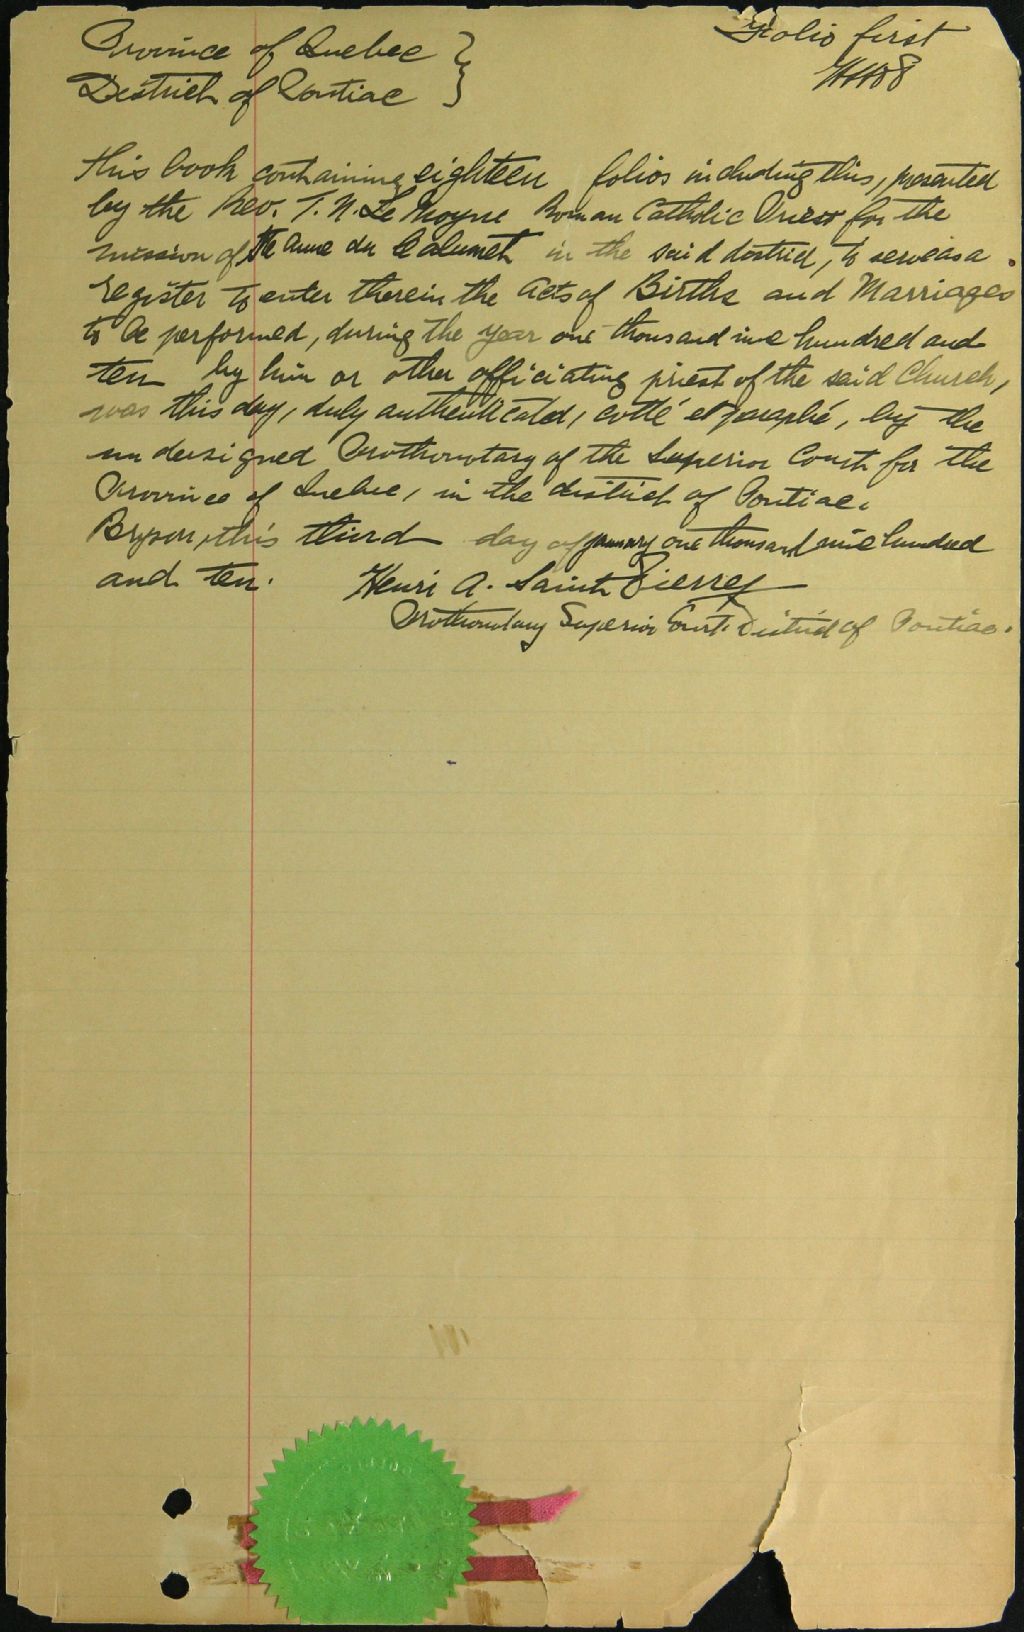 Province of Quebec }
District of Pontiac }
Folio first
This book containing eighteen folios including this, presented
by the Rev. T. N. Le Moyne Roman Catholic Priest for the
mission of Ste Anne du Calumet in the said district, to serve as a
register to enter therein the acts of Births and Marriages
to be performed, during the year one thousand nine hundred and
ten by him or other officiating priest of the said Church,
was this day, duly authenticated, cotté et paraphé, by the
undersigned Prothonotary of the Superior Court for the
Province of Quebec, in the district of Pontiac.
Bryson, this third day of January one thousand nine hundred
and ten.
Henri A. Saint Pierre
Prothonotary Superior Court. District of Pontiac.